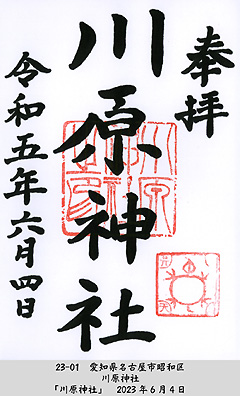 奉拝
川原神社
令和五年六月四日
23-01 愛知県名古屋市昭和区
川原神社
「川原神社」 2023年6月4日